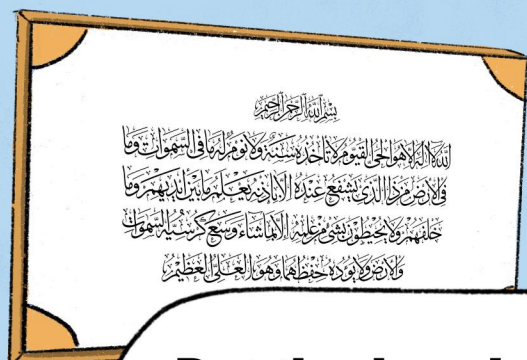 بسم الله الرحمن الرحيم
الله لا اله الا هو الحي القيوم لا تأخذه سنة ولا نوم له ما في السموات وما
في الأرض من ذا الذي يشفع عنده الا باذنه يعلم ما بين ايديهم وما
خلفهم ولا يحيطون بشئ من علمه الا بما شاء وسع كرسيه السموات
والارض ولا يوده حفظهما وهو العلي العظيم